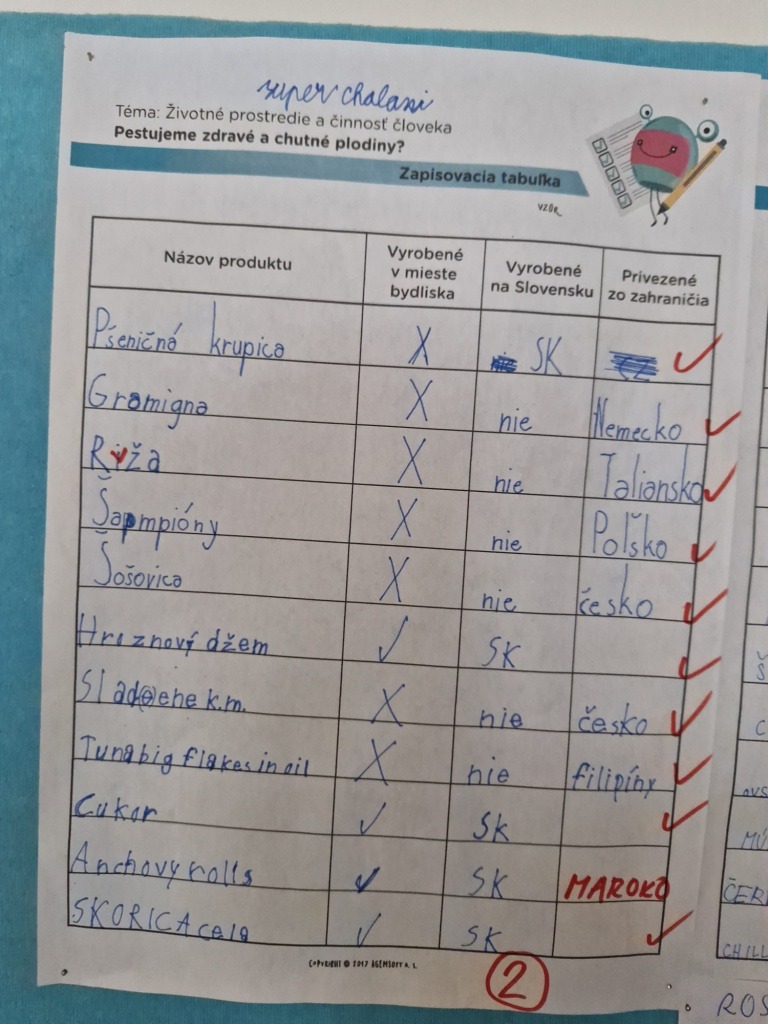 super chalani
Téma: Životné prostredie a činnosť človeka
Pestujeme zdravé a chutné plodiny?
Zapisovacia tabuľka
VZOR
Názov produktu Vyrobené v mieste bydliska Vyrobené na Slovensku Privezené zo zahraničia
Pšeničná krupica X SK ✓
Gramigna X nie Nemecko ✓
Ryža X nie Taliansko ✓
Šapmpióny X nie Poľsko ✓
Šošovica X nie česko ✓
Hroznový džem ✓ SK ✓
Slad@ene k.m. X nie česko ✓
Tuna big flakes in oil X nie filipíny ✓
Cukor ✓ SK ✓
Anchovy rolls ✓ SK MAROKO
SKORICA cela ✓ SK ✓
COPYRIGHT © 2017 AGEMSOFT A. S.
2
Š
C
OVS
MÚ
ČER
CHILL
ROS